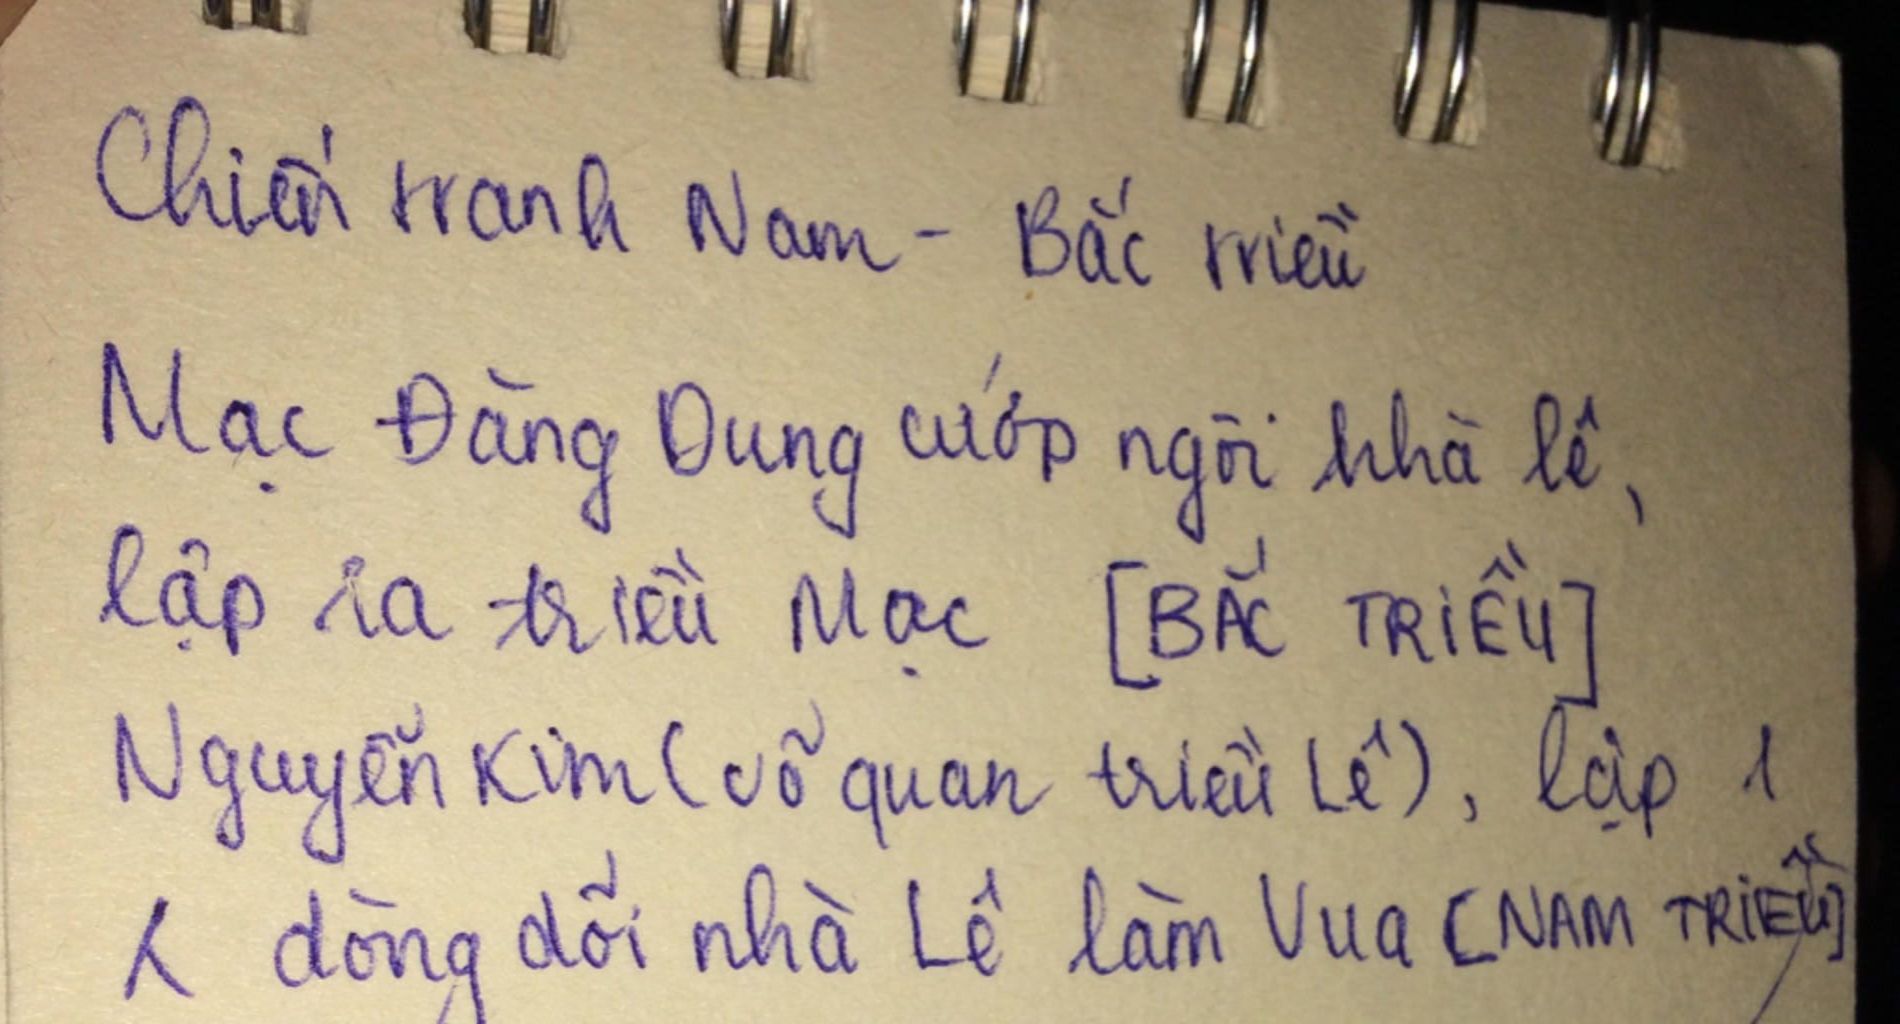 Chiến tranh Nam - Bắc triều
Mạc Đăng Dung cướp ngôi nhà lê,
lập ra triều Mạc [BẮC TRIỀU]
Nguyễn Kim (võ quan triều Lê), lập 1
λ dòng dõi nhà Lê làm Vua [NAM TRIỀU]